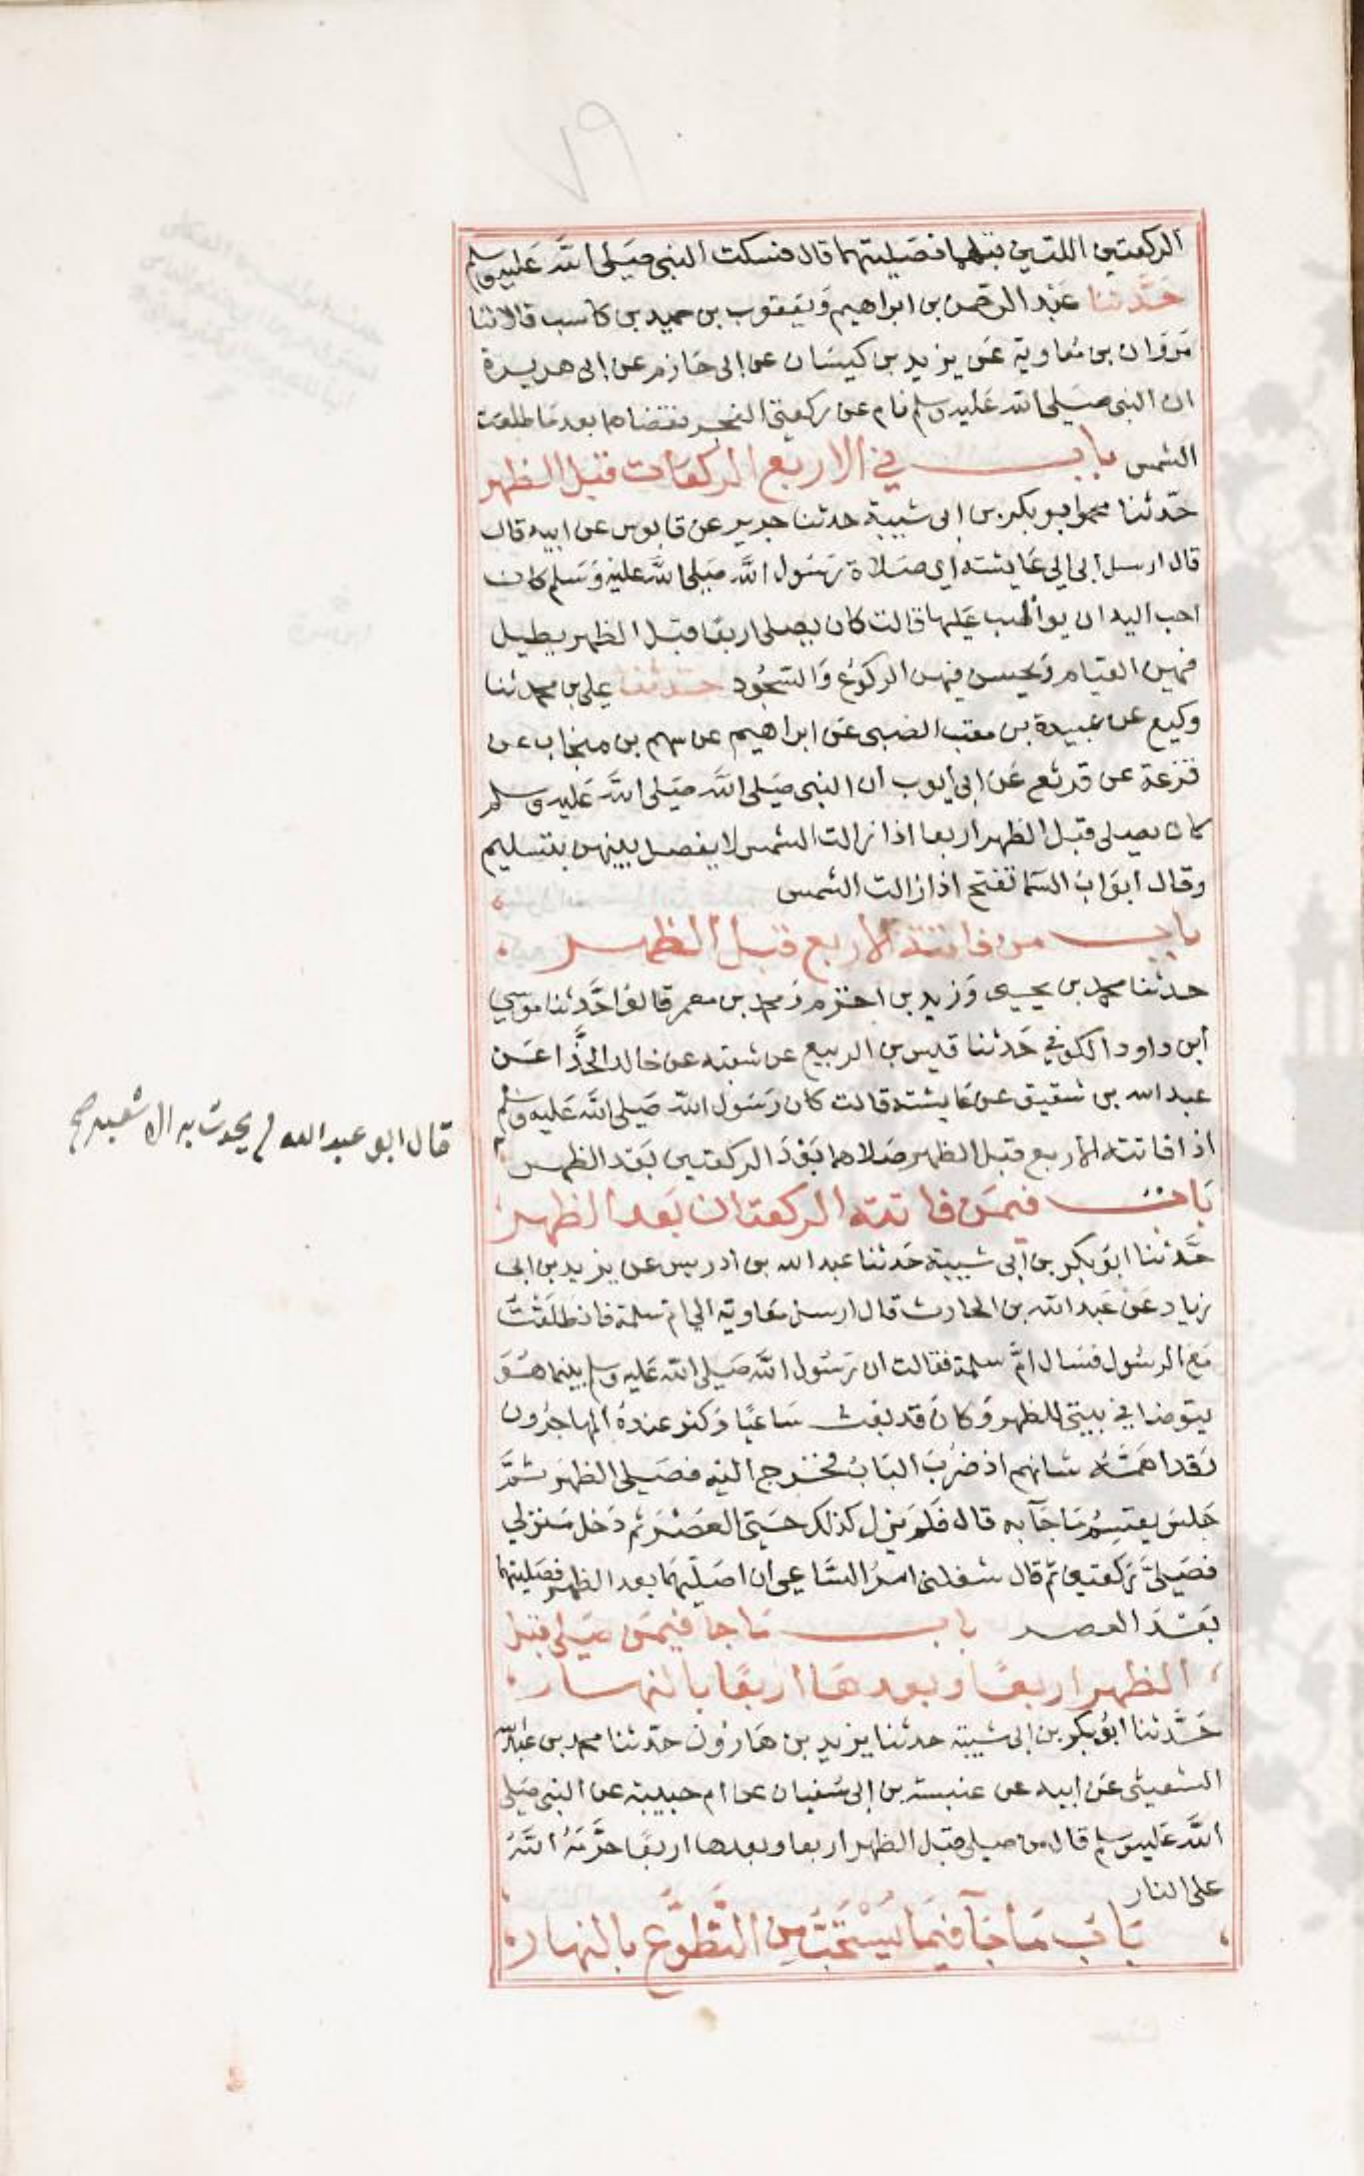 ٧٩
الركعتين اللتين قبلهما فصليتهما قال فسكت النبي صَلى اللَّه عَليه وسلم
حَدَّثنا عَبْد الرحمن بن ابراهيم وَيَعقوب بن حميد بن كاسب قالا ثنا
مَروَان بن مُعاوية عَن يزيد بن كيسَان عن ابى حَازم عن ابى هريرة
ان النبى صَلى الله عَليه وسلم نام عن ركعتي الفجر فقضاهما بعد مَا طلعت
الشمس باب في الاربَع الركعَات قبل الظهر
حَدّثنا ابو بكر بن ابى شيبة حدثنا جرير عن قابوس عن ابيه قال
قال ارسل ابى الى عَايشة اي صَلاة رَسُول اللَّه صَلى اللَّه عليْه وَسَلم كان
احب اليه ان يواظب عَليها قالت كان يصلى اربعًا قبل الظهر يطيل
فيهن القيام وَيحسن فيهن الركوُع وَالسّجُود حَدثنا علي بن محمد ثنا
وكيع عن عبيدة بن معتب الضبى عَن ابراهيم عن سهم بن منجاب عن
قزعة عن قرثع عَن ابي أيوب ان النبى صَلى اللَّه صَلى اللَّه عَليه وسلم
كان يصلى قبل الظهر اربعا اذا زالت الشمس لا يفصل بينهن بتسليم
وقال ابوَابُ السَما تفتح اذا زالت الشمس
باب من فاتته الاربع قبل الظهر
حدثنا محمد بن يحيى وَزيد بن اخزم وَمحمد بن معمر قالوُا حَدَّثنا موسي
ابن داود الكوفي حَدثنا قيس بن الربيع عن شعبة عن خالد الحَذَّا عَن
عبد الله بن شقيق عن عَايشة قالت كان رَسَول اللَّه صَلى اللَّه عَليه وسلم
اذا فاتته الاربع قبل الظهر صَلاهما بَعْدَ الركعتين بَعْد الظهر
قال ابو عبد الله لم يحدث به الا شعبه صح
بَابُ فيمَن فاتته الركعتان بَعد الظهر
حَدَّثنا ابَو بكر بن ابى شيبة حَدثنا عبد الله بن ادريس عن يزيد بن ابى
زياد عَن عَبد الله بن الحارث قال ارسل مَعاوية الي ام سَلمة فانطلَقْتُ
مَع الرسُول فسَال امَّ سلمة فقالت ان رَسُول اللَّه صَلى اللَّه عَليه وسلم بينما هُوَ
يتوضا في بيتي للظهر وَكانَ قد بَعث سَاعيًا وَكثر عندهُ المهاجرُون
وَقد اهَمَّهُ شانهم اذ ضرُبَ البَابُ فخرج اليْه فصَلى الظهَر ثمَّ
جَلسَ يقسِمُ مَا جَآ به قال فَلمَ يزل كذلك حَتى العَصْرَ ثم دَخل مَنزلي
فصَلىَّ رَكعتين ثم قال شغلنى امرُ السَّاعى ان اصَليهمَا بعد الظهر فصَليتهما
بَعْدَ العصر باب مَا جا فيمَن صَلى قبل
الظهر اربعًا وبعدهَا اربعًا بالنهار
حَدَّثنا ابَوُ بكر بن ابى شيبة حدثنا يزيد بن هَارُون حدّثنا محمد بن عبد الله
الشعيثى عَن ابيه عن عنبسة بن ابى سُفيان عن ام حبيبة عن النبى صَلى
اللَّه عَليه وسلم قال من صلى قبل الظهر اربعا وبعدها اربعًا حَرَّمَهُ اللَّهُ
على النار
بَابُ مَا جَآ فيمَا يُسْتَحَبُّ مِن التَّطَوّع بالنهار